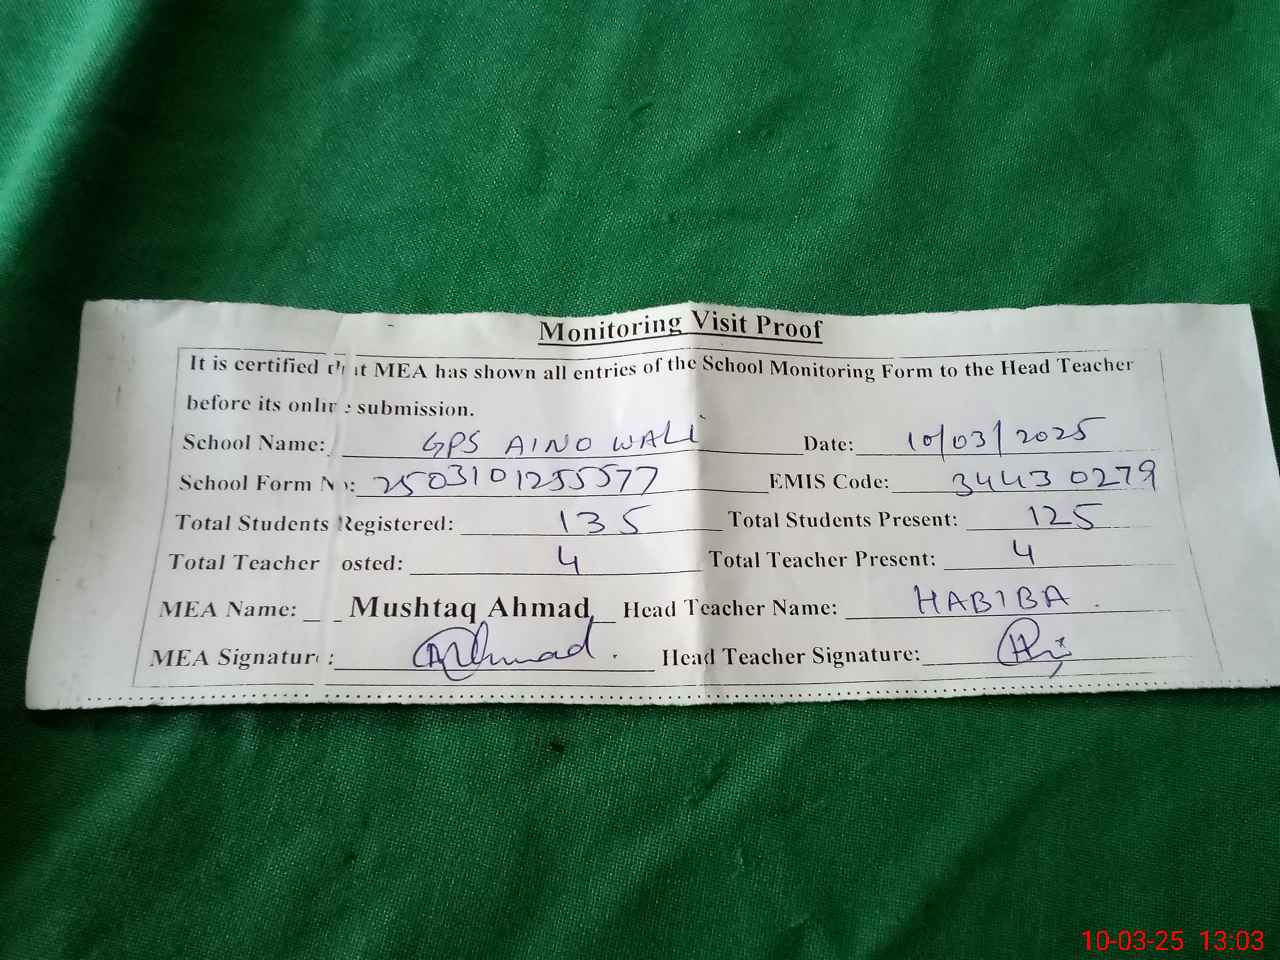 Monitoring Visit Proof
It is certified that MEA has shown all entries of the School Monitoring Form to the Head Teacher
before its online submission.
School Name: GPS AINO WALI Date: 10/03/2025
School Form No: 2503101255577 EMIS Code: 34430279
Total Students Registered: 135 Total Students Present: 125
Total Teacher osted: 4 Total Teacher Present: 4
MEA Name: Mushtaq Ahmad Head Teacher Name: HABIBA.
MEA Signature: Ahmad. Head Teacher Signature:
10-03-25 13:03